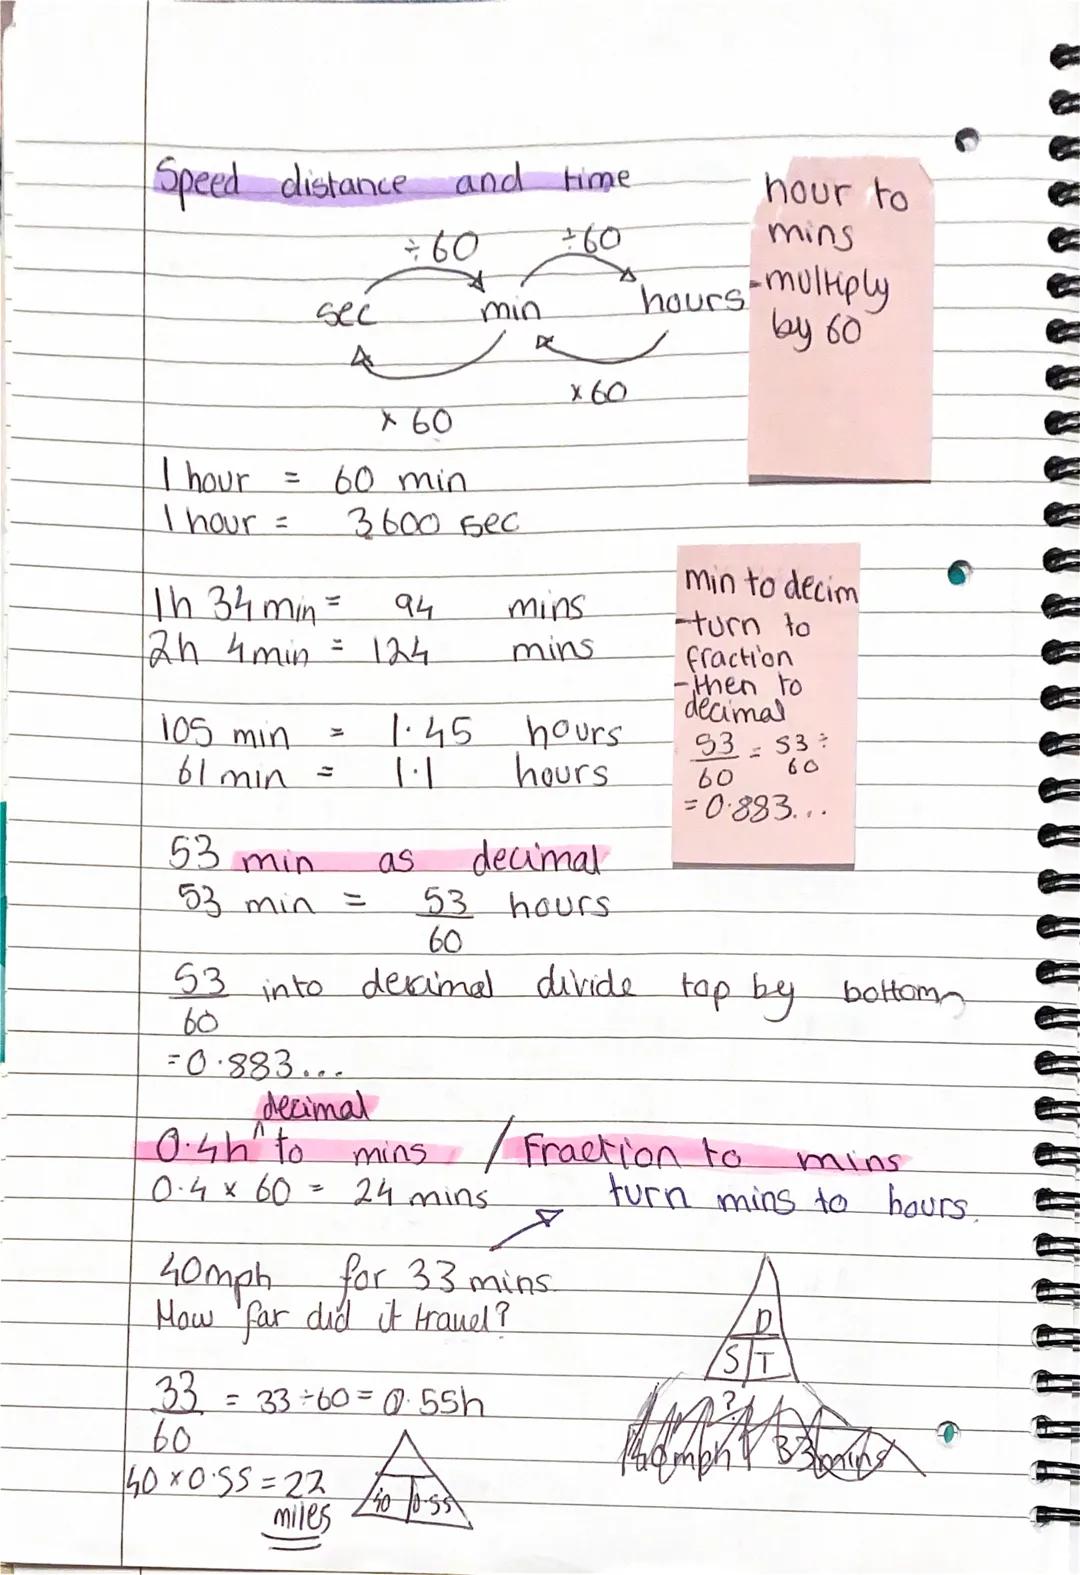 Speed distance and time
÷60 ÷60
sec min hours
× 60 × 60
hour to
mins
-multiply
by 60
1 hour = 60 min
1 hour = 3600 sec
1h 34 min = 94 mins
2h 4min = 124 mins
105 min = 1.45 hours
61 min = 1.1 hours
min to decim
-turn to
fraction
-then to
decimal
53/60 = 53 ÷ 60
= 0.883...
53 min as decimal
53 min = 53/60 hours
53/60 into decimal divide top by bottom
=0.883...
decimal
0.4h ^ to mins / Fraction to mins
0.4 × 60 = 24 mins turn mins to hours.
40mph for 33 mins.
How far did it travel?
D
S T
33/60 = 33÷60 = 0.55h
40 × 0.55 = 22
miles
40 0.55
?
40mph 33mins